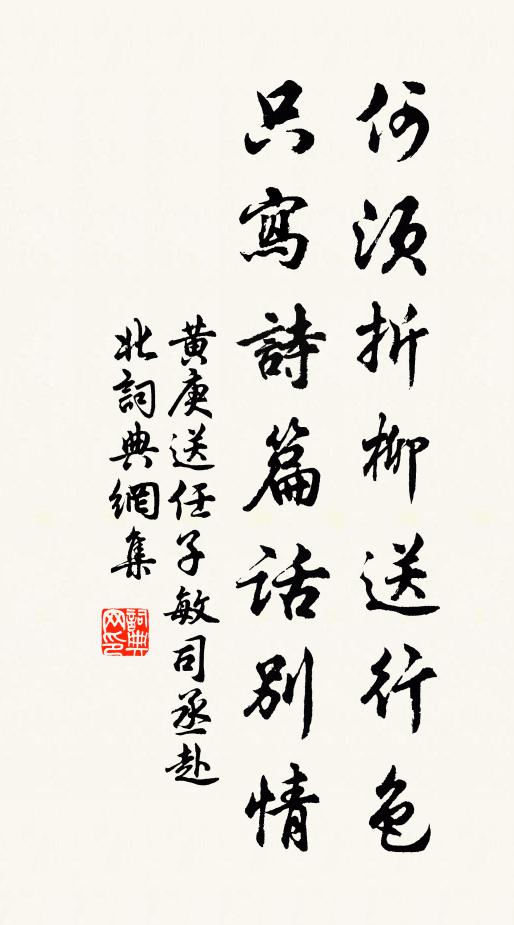 何須折柳送行色
只寫詩篇話別情
黄庚送任子敏司丞赴
北詞典網集
詞典网印